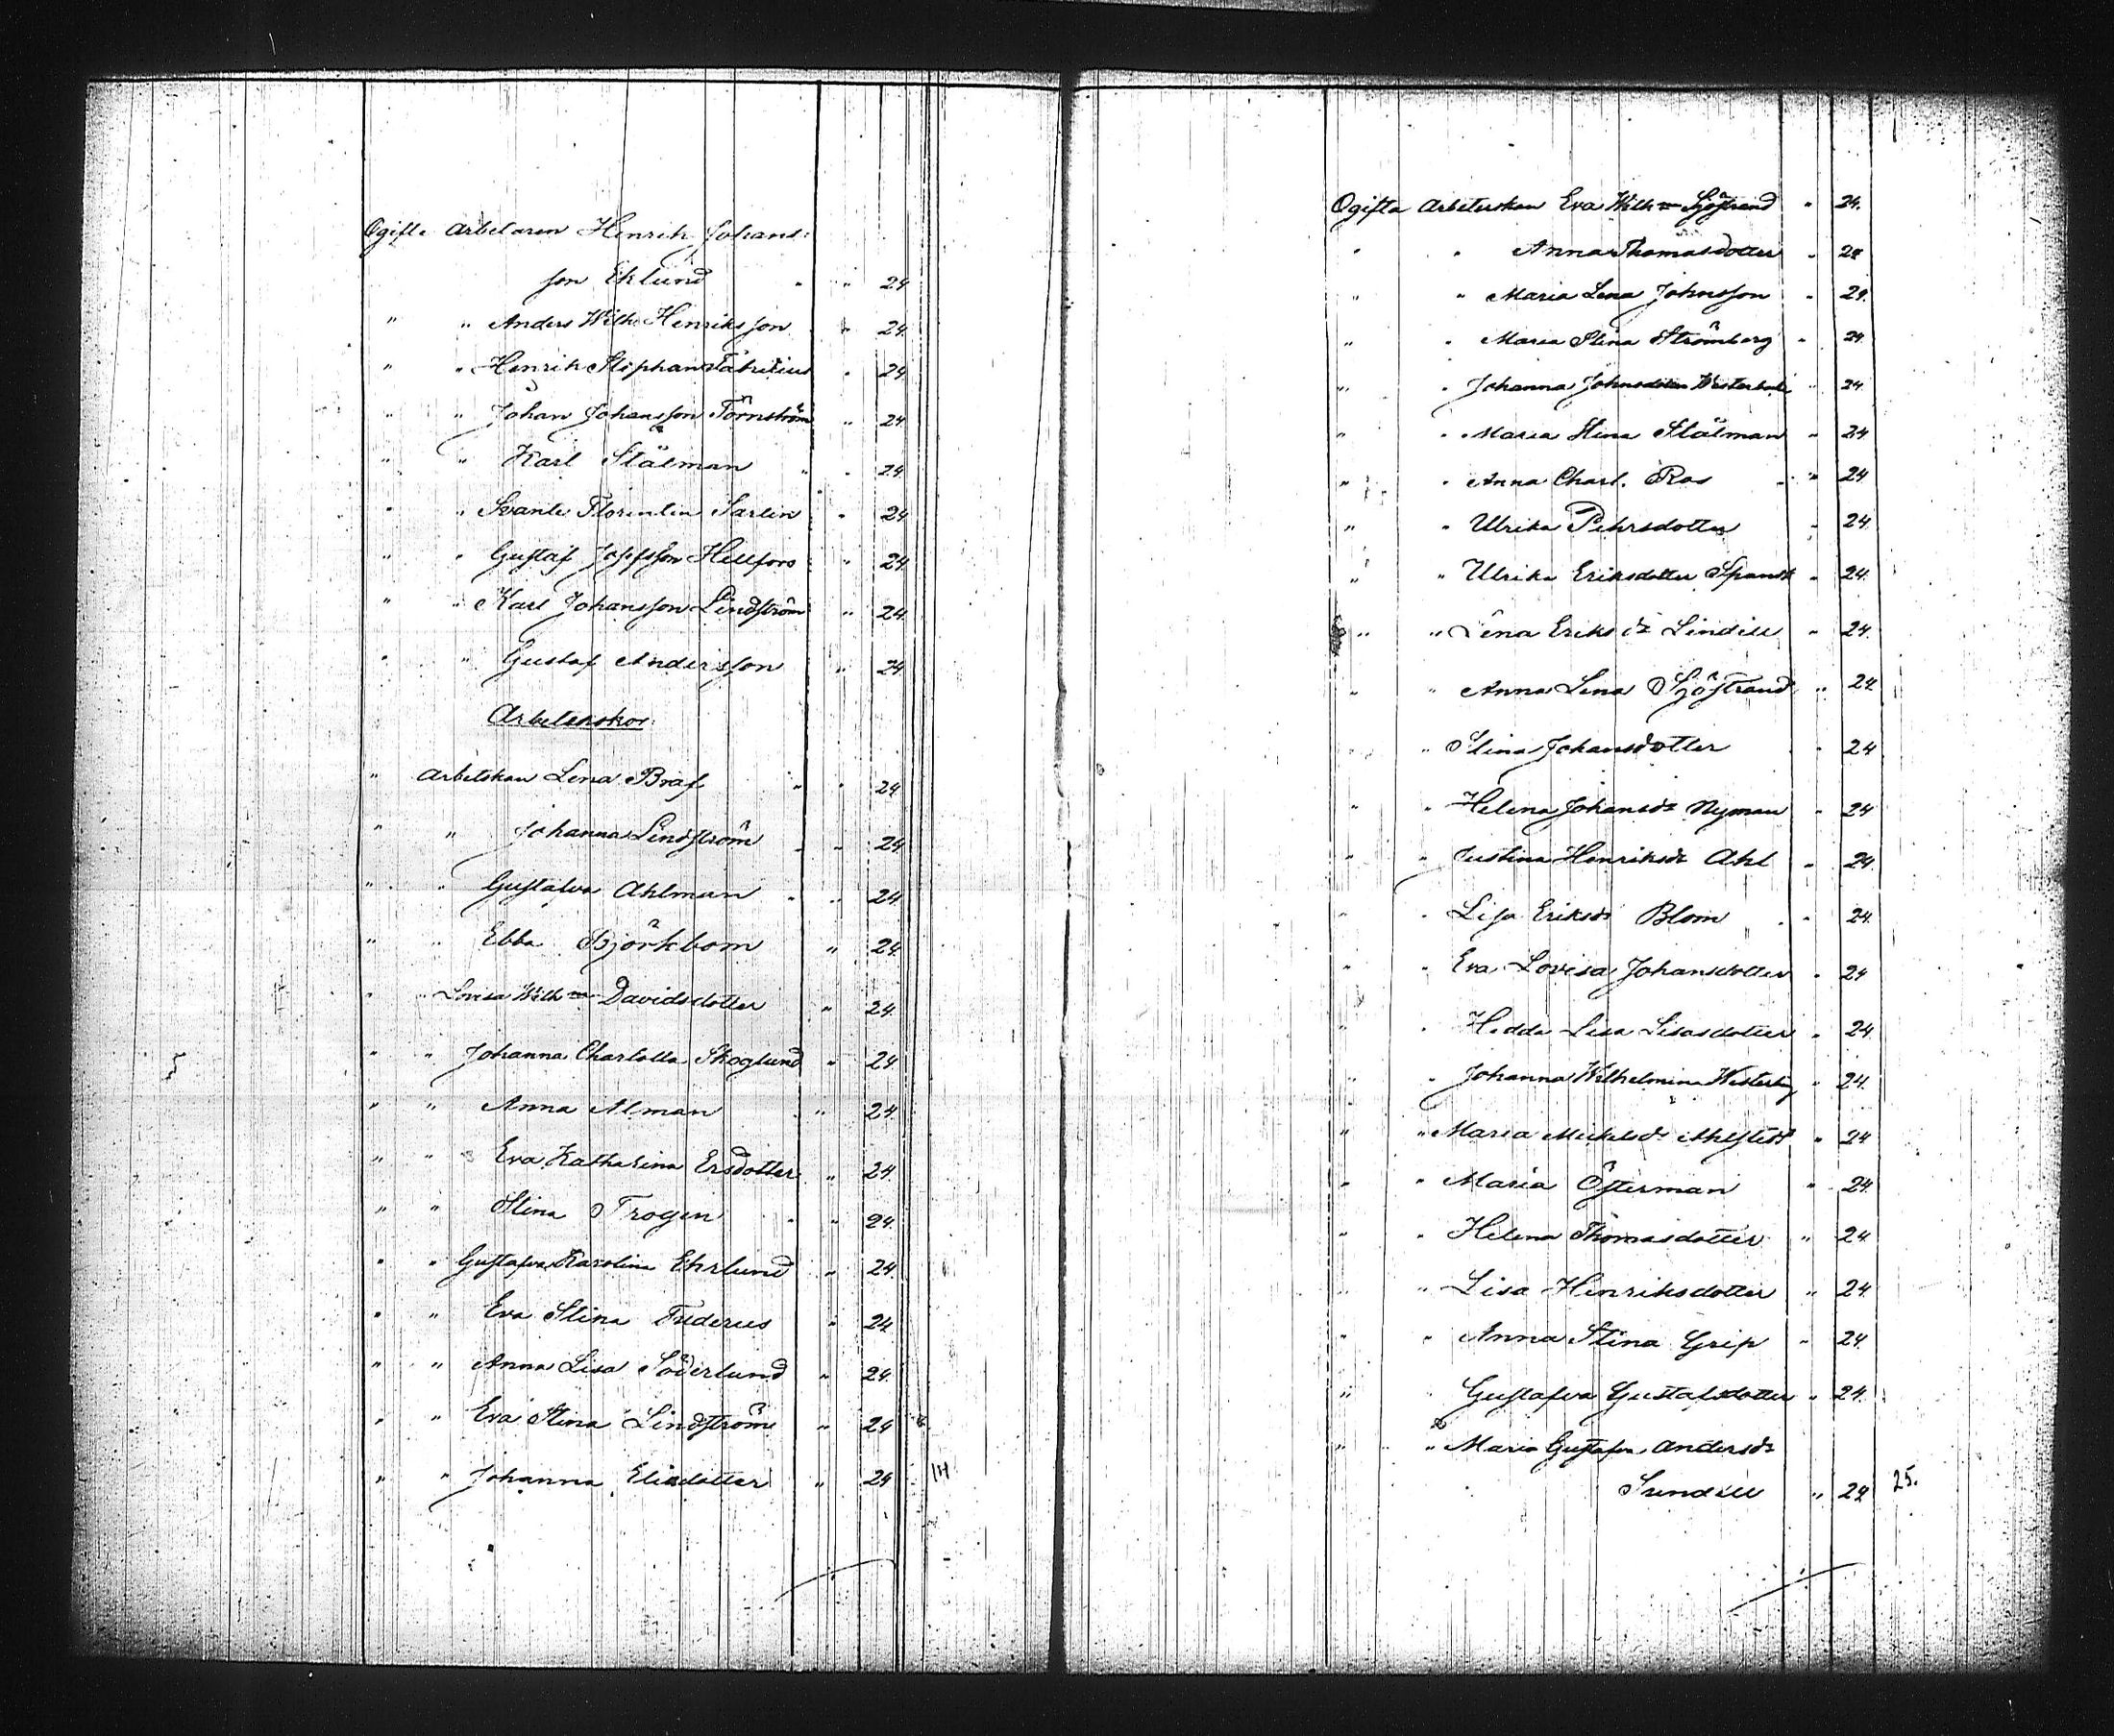 Ogifte Arbetaren Henrik Johans-
son Eklund " " 24
" " Anders Wilh. Henriksson " 24.
" " Henrik Stephan Fabritius " 24
" " Johan Johansson Törnström " 24
" " Karl Stålman " " 24
" " Svante Florentin Sarlin " 24
" " Gustaf Josefsson Hellfors " 24
" " Karl Johansson Lindström " 24.
" " Gustaf Andersson " 24
Arbeterskor
" Arbetskan Lena Braf " " 24
" " Johanna Lindström " " 24
" " Gustafva Ahlman " " 24
" " Ebba Björkbom " 24.
" " Lovisa Wilhma Davidsdotter " 24.
" " Johanna Charlotta Skoglund " 24
" " Anna Alman " 24.
" " Eva Katharina Ersdotter " 24
" " Stina Trogen " " 24.
" " Gustafva Karolina Ekrlund " 24.
" " Eva Stina Frederus " 24
" " Anna Lisa Söderlund " 24.
" " Eva Stina Lindström " 24
" " Johanna Eliedotter " 24 14
Ogifta Arbeterskan Eva Wilhma Sjöstrand " 24.
" " Anna Thomasdotter " 24
" " Maria Lena Johnsson " 24.
" " Maria Stina Strömberg " 24.
" " Johanna Johnsdotter " 24
" " Maria Stina Stålman " 24
" " Anna Charl. Ros " " 24
" " Ulrika Pehrsdotter " 24.
" " Ulrika Eriksdotter Spansk " 24.
" " Lena Eriksdr Lindell " 24.
" " Anna Lena Sjöstrand " 24.
" Stina Johansdotter " 24
" " Helena Johansdr Nyman " 24
" " Justina Henriksdr Ahl " 24.
" " Lisa Eriksdr Blom " " 24.
" " Eva Lovisa Johansdotter " 24
" " Hedda Lisa Lisasdotter " 24.
" " Johanna Wilhelmina Westerberg " 24.
" " Maria Mickelsdr Ahlstedt " 24
" " Maria Österman " 24.
" " Helena Thomasdotter " 24.
" " Lisa Henriksdotter " 24.
" " Anna Stina Grip " 24.
" " Gustafva Gustafsdotter " 24.
" " Maria Gustafva Andersdr
Sundell " 24 25.